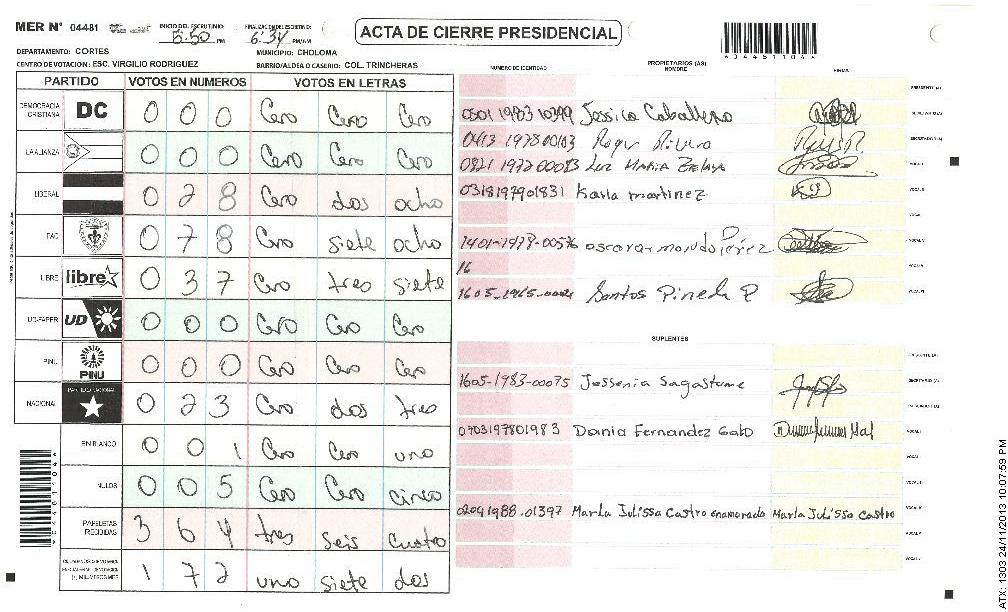 MER Nº 04481 INICIO DEL ESCRUTINIO: 5:50 PM FINALIZACION DEL ESCRUTINIO: 6:34 PM/AM
ACTA DE CIERRE PRESIDENCIAL
*044811044*
DEPARTAMENTO: CORTES MUNICIPIO: CHOLOMA
CENTRO DE VOTACION: ESC. VIRGILIO RODRIGUEZ BARRIO/ALDEA O CASERIO: COL. TRINCHERAS
PARTIDO VOTOS EN NUMEROS VOTOS EN LETRAS
DEMOCRACIA CRISTIANA DC 0 0 0 Cero Cero Cero
LA ALIANZA 0 0 0 Cero Cero Cero
LIBERAL 0 2 8 Cero dos ocho
PAC 0 7 8 Cero siete ocho
LIBRE libre 0 3 7 Cero tres siete
UD-FAPER UD 0 0 0 Cero Cero Cero
PINU PINU 0 0 0 Cero Cero Cero
NACIONAL PARTIDO NACIONAL 0 2 3 Cero dos tres
EN BLANCO 0 0 1 Cero Cero uno
NULOS 0 0 5 Cero Cero cinco
PAPELETAS RECIBIDAS 3 6 4 tres seis cuatro
1 7 2 uno siete dos
NUMERO DE IDENTIDAD PROPIETARIOS (AS) NOMBRE FIRMA
PRESIDENTE (A)
0501 1983 10399 Jessica Caballero SECRETARIO (A)
0413 1978 00103 Roger Rivera
0821 1972 00083 Luz Maria Zelaya VOCAL I
0318197901831 Karla martinez VOCAL II
1401-1978-00576 oscar armando Perez VOCAL IV
16
1605-1965-00021 Santos Pineda P
SUPLENTES
PRESIDENTE (A)
1605-1983-00075 Jessenia Sagastume SECRETARIO (A)
0703197801983 Dania Fernandez Gato VOCAL I
VOCAL II
02041988-01397 Marla Julissa Castro enamorado Marla Julissa Castro VOCAL IV
VOCAL V
ATX: 1303 24/11/2013 10:07:59 PM